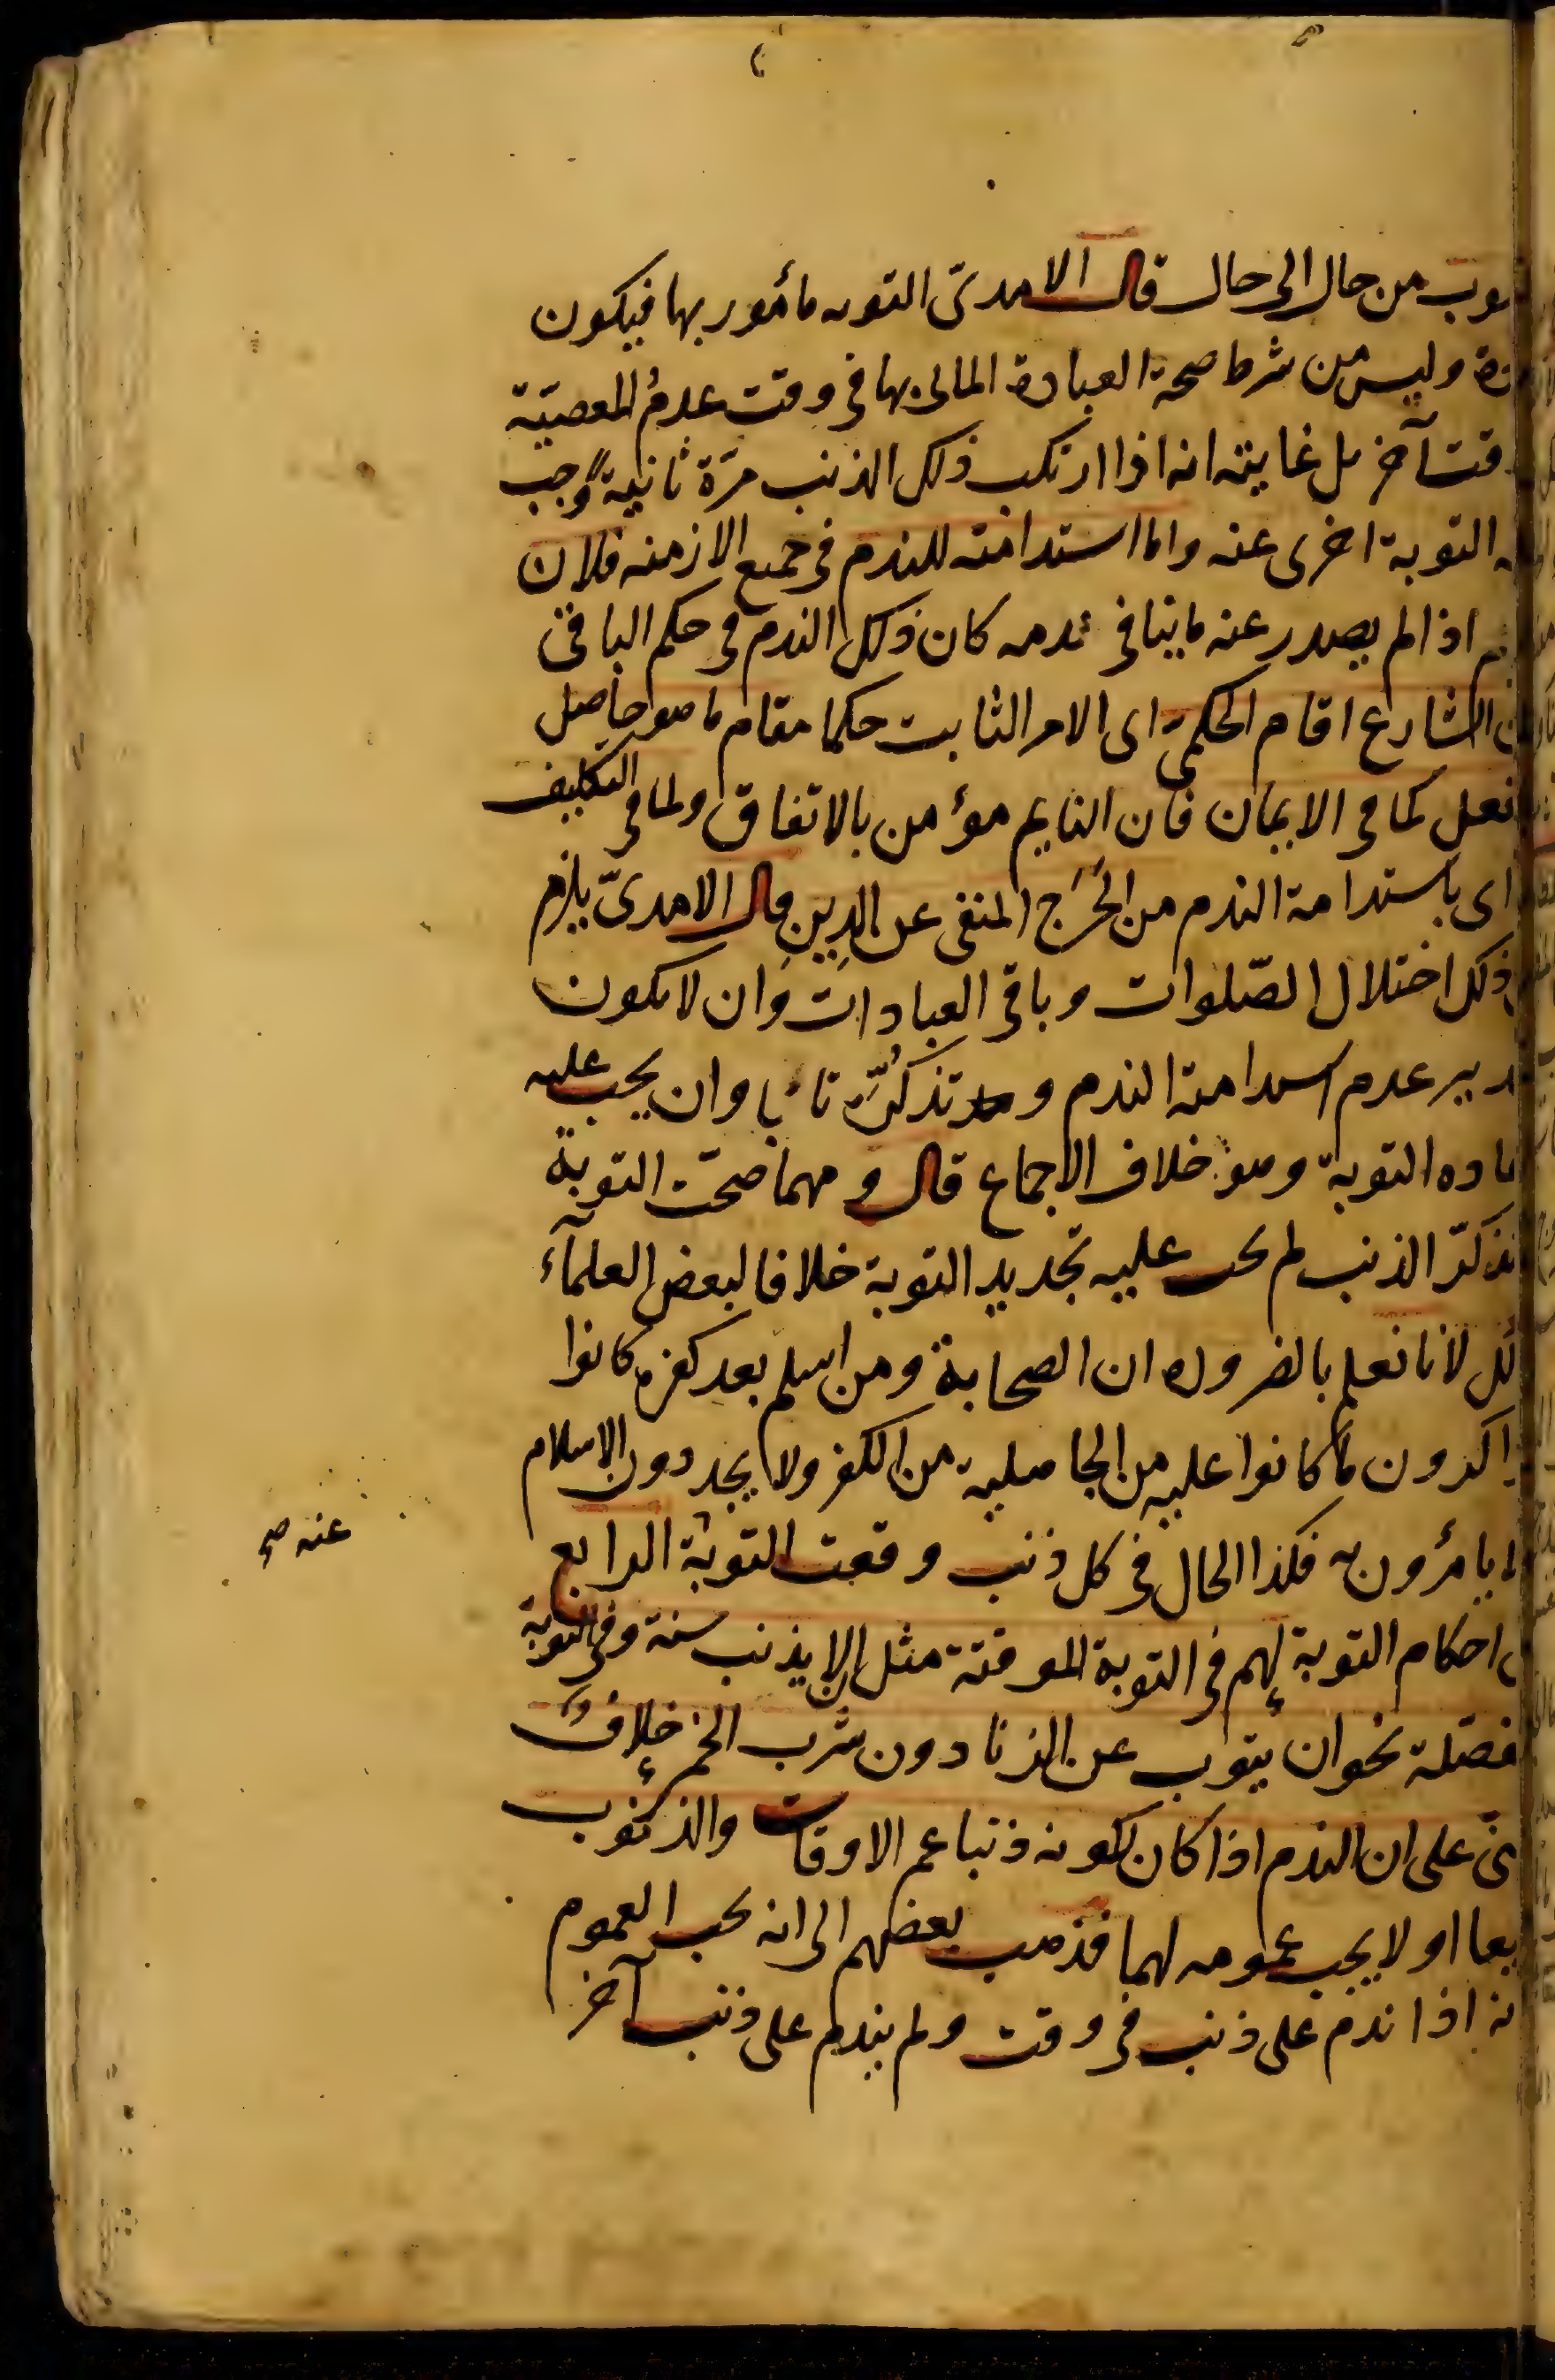 من حال الى حال قال الامدىّ التوبه مأمور بها فيكون
وليس من شرط صحة العبادة الماتى بها فى وقت عدمُ المعصيّة
آخر بل غايته انه اذا ارتكب ذلك الذنب مرّة ثانيةً وجب
التوبة اخرى عنه واما استدامته للندم فى جميع الازمنه فلان
اذا لم يصدر عنه ما ينافى ندمه كان ذلك الندم فى حكم الباقى
الشارع اقام الحكمىّ اى الامر الثابت حكما مقام ما هو حاصل
كما فى الايمان فان النايم مؤمن بالاتفاق ولما فى التكليف
اى باستدامة الندم من الحَرَج المنفى عن الدِين قال الامدىّ يلزم
ذلك اختلال الصّلوات وباقى العبادات وان لا يكون
عدم استدامة الندم وتذكّره تائبا وان يجب عليه
التوبة وهو خلاف الاجماع قال و مهما صحّت التوبة
الذنب لم يجب عليه تجديد التوبة خلافا لبعض العلمآء
لانا نعلم بالضروره ان الصحابة ومن اسلم بعد كفره كانوا
ما كانوا عليه من الجاهلية من الكفر ولا يجددون الاسلام
يأمرون به فكذا الحال فى كل ذنب وقعت التوبة الرابع
عنه صح
احكام التوبة لهم فى التوبة الموقتة مثل ان لا يذنب سنة وفى التوبة
نحو ان يتوب عن الزنا دون شرب الخمر خلافٌ
على ان الندم اذا كان لكونه ذنبا عم الاوقات والذنوب
او لا يجب عمومه لهما فذهب بعضهم الى انه يجب العموم
اذا ندم على ذنب فى وقت ولم يندم على ذنب آخر